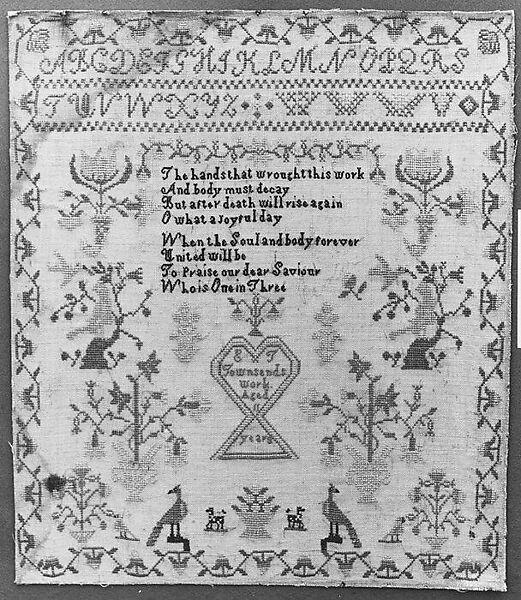 ABCDEFGHIKLMNOPQRS
TUVWXYZ
The hands that wrought this work
And body must decay
But after death will rise again
O what a Joyful day
When the Soul and body forever
United will be
To Praise our dear Saviour
Who is One in Three
S T
Townsends
Work
Aged
11
years